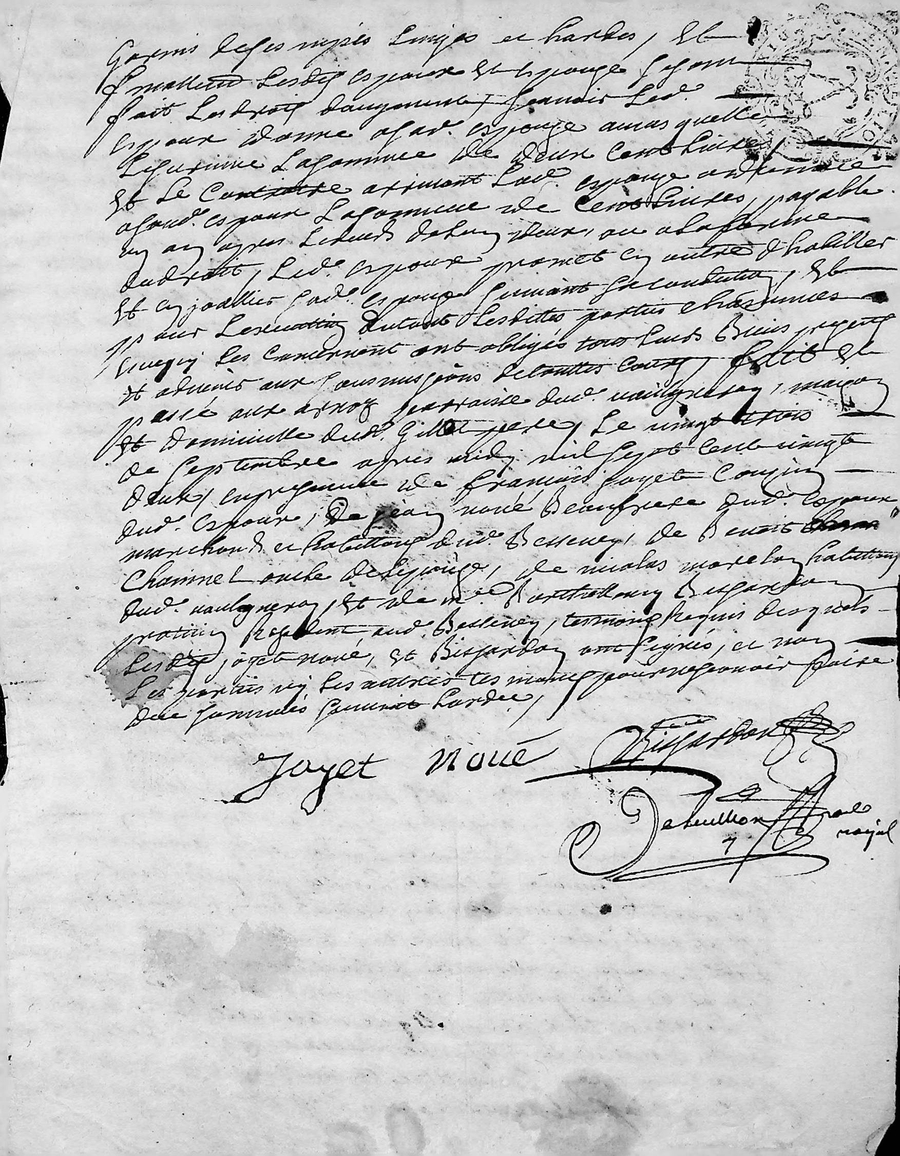 Garnis de ses nipes linges et hardes, Et
finallem.t Lesd. espoux Et espouze se sont
fait Les droits daugment, scavoir Led.
espoux donne a sad. espouze au cas quelle
Le survive La somme de deux Cent Livres,
Et Le Contraire arrivant Lad. espouze
aud. espoux La somme de Cent Livres, payable
un an apres Le deces de Lun deux, ou a La forme
du droit, Led. espoux promet en outre d'habiller
Et enjoaillier sad. espouze suivant sa condition, Et
pour Lexecution dutout Lesdites parties chacunes
en ce qui Les Concernent ont obligés tous Leurs Biens presents
Et advenir aux soumissions de touttes Cours, fait Et
passé aux paroisse dud. vaulgneray, maison
Et domicille dud. Gillet pere, Le vingt trois
de Septembre apres midy mil sept Cent vingt
deux, en presence de francois Jayet Cousin
dud. espoux, De Jean noué Beaufrere dud. espoux
marchands et habittans dud. Bessenay, de Benoit
Charmet oncle de Lepouze, de nicolas habittant
dud. vaulgneray, Et de m.e Barthellemy Bissardon
praticien Resident aud. Bessenay, temoins Requis desquels
Lesd. Jayet noué, Et Bissardon ont signés, et non
Les parties ny Les autres temoins pour ne scavoir faire
de ce sommés suivant Lordce,
Jayet noué Bissardon
royal